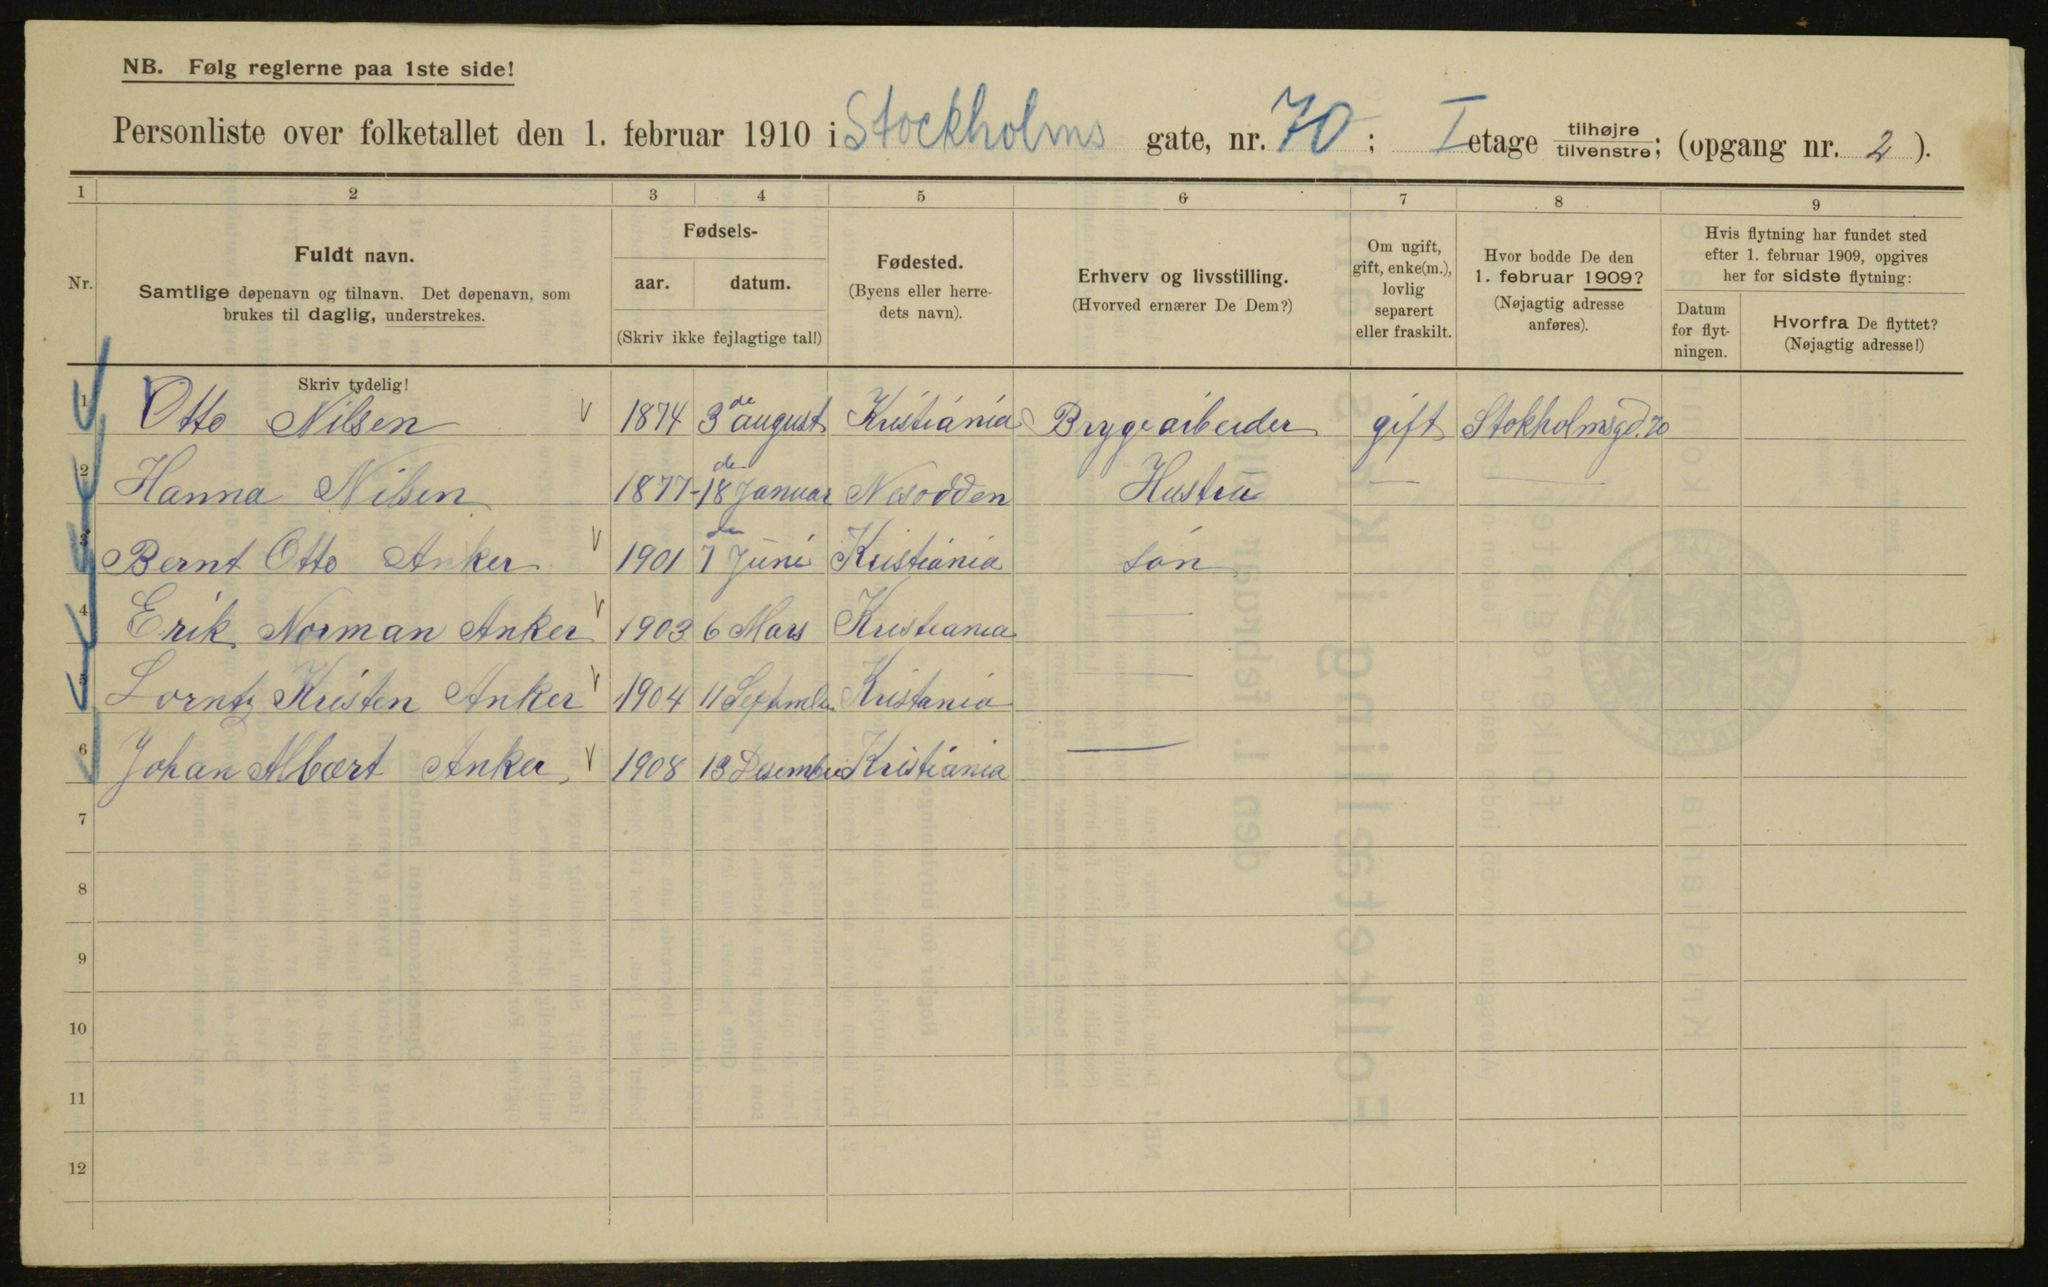 NB. Følg reglerne paa 1ste side!
Personliste over folketallet den 1. februar 1910 i Stockholms gate, nr. 70; I etage tilhøjre tilvenstre; (opgang nr. 2).
1 2 3 4 5 6 7 8 9
Nr.
Fuldt navn.
Samtlige døpenavn og tilnavn. Det døpenavn, som
brukes til daglig, understrekes.
Fødsels-
aar. datum.
(Skriv ikke fejlagtige tal!)
Fødested.
(Byens eller herre-
dets navn).
Erhverv og livsstilling.
(Hvorved ernærer De Dem?)
Om ugift,
gift, enke(m.),
lovlig
separert
eller fraskilt.
Hvor bodde De den
1. februar 1909?
(Nøjagtig adresse
anføres).
Hvis flytning har fundet sted
efter 1. februar 1909, opgives
her for sidste flytning:
Datum
for flyt-
ningen.
Hvorfra De flyttet?
(Nøjagtig adresse!)
Skriv tydelig!
1 Otto Nilsen 1874 3de august Kristiánia Brygearbeider gift Stokholmsgd. 70
2 Hanna Nilsen 1877 - 18 de Januar Nesodden Hustru —
3 Bernt Otto Anker 1901 7 de Juni Kristiánia són
4 Erik Norman Anker 1903 6 Mars Kristiania —
5 Lorntz Kristen Anker 1904 11 Septmber Kristania —
6 Johan Albært Anker 1908 13 Desember Kristiánia —
7
8
9
10
11
12